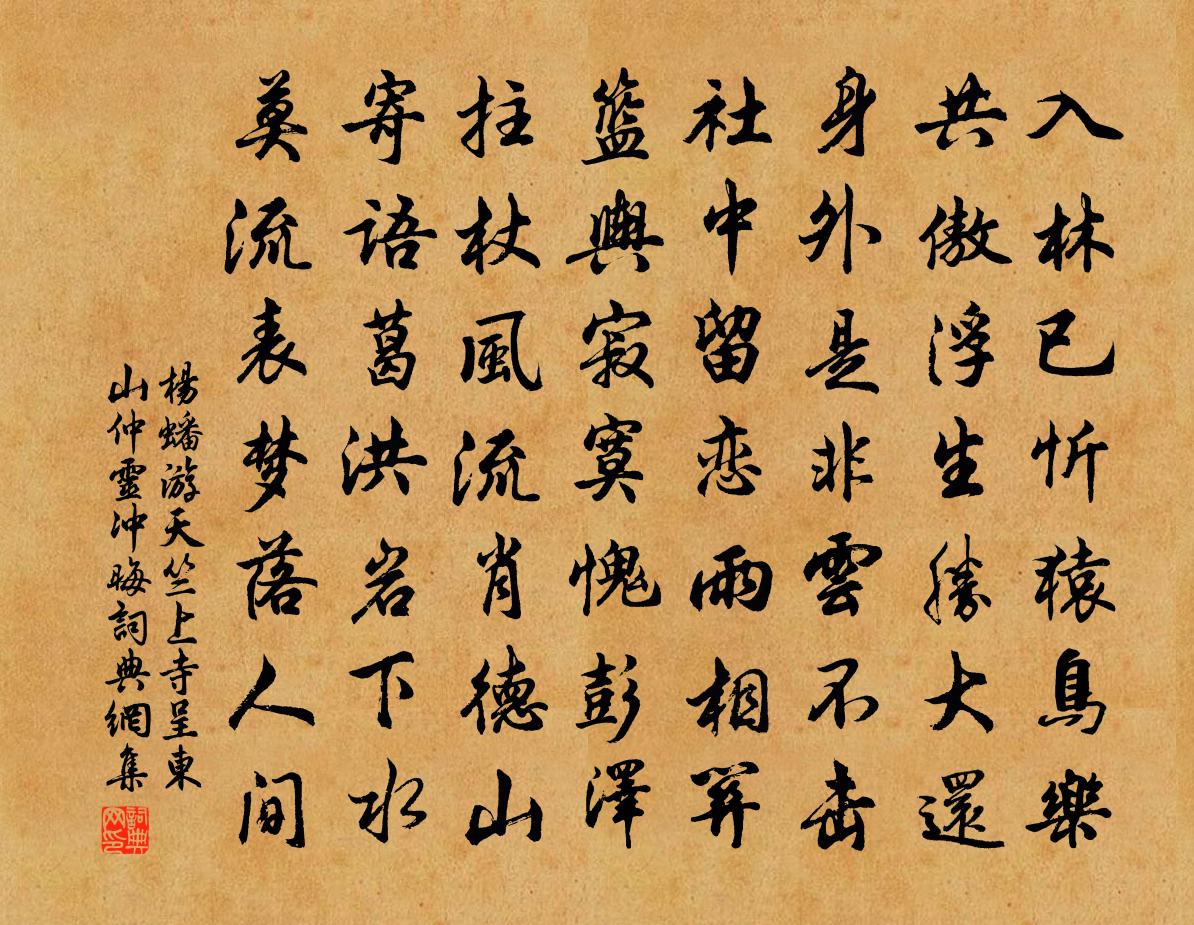 入林已忻猿鳥樂
共傲浮生勝大還
身外是非雲不击
社中留恋雨相關
籃輿寂寞愧彭澤
拄杖風流肖德山
寄語葛洪岩下水
莫流表梦落人間
楊蟠游天竺上寺呈東
山仲靈冲晦詞典網集
詞典
网印